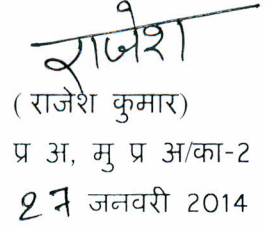 राजेश
( राजेश कुमार)
प्र अ, मु प्र अ/का-2
27 जनवरी 2014